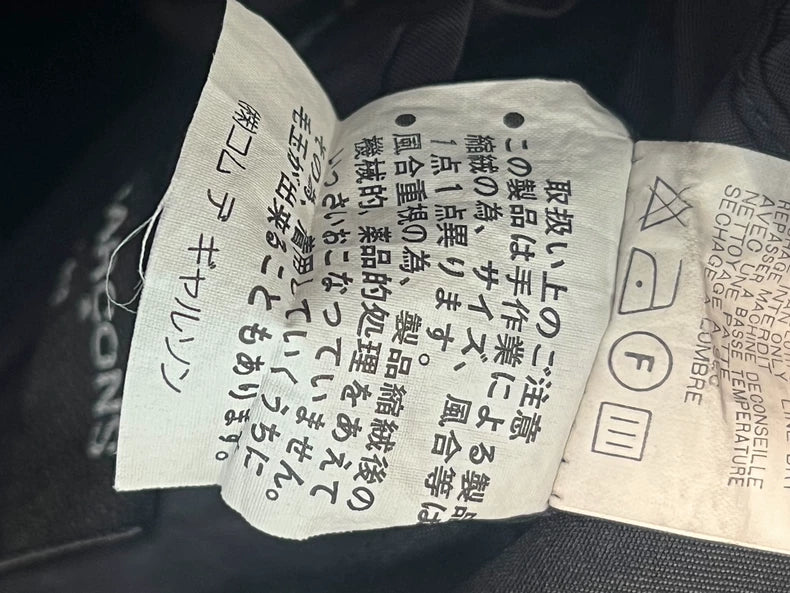 取扱い上のご注意
●この製品は手作業による製品
縮絨の為、サイズ、風合等は
1点1点異ります。
●風合重視の為、製品縮絨後の
機械的、薬品的処理をあえて
いっさいおこなっていません。
その為、着用していくうちに
毛玉が出来ることもあります。
㈱コム デ ギャルソン
LINE DRY
ONLY
MACHINE DECONSEILLE
BASSE TEMPERATURE
F